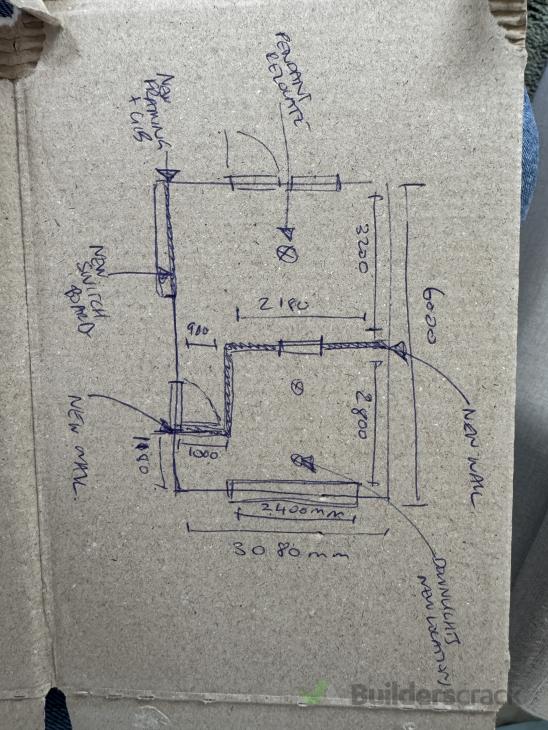 PENDANT
RELOCATE
NEW
FRAMING
+ GIB
3200
6000
NEW
SWITCH
BOARD
2180
900
2800
NEW WALL
NEW WALL
1000
2400mm
3080mm
DOWNLIGHTS
NEW LOCATION
Builderscrack